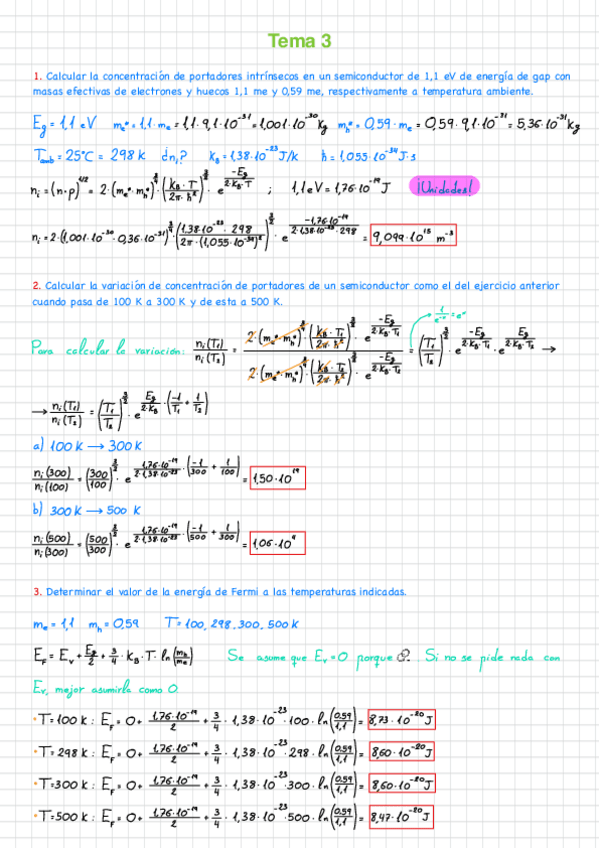 Tema 3
1. Calcular la concentración de portadores intrínsecos en un semiconductor de 1,1 eV de energía de gap con
masas efectivas de electrones y huecos 1,1 me y 0,59 me, respectivamente a temperatura ambiente.
Eg = 1,1 eV   me* = 1,1 · me = 1,1 · 9,1·10^-31 = 1,001·10^-30 kg   mh* = 0,59 · me = 0,59 · 9,1·10^-31 = 5,36·10^-31 kg
Tamb = 25°C = 298 k   ¿ni?   kB = 1,38·10^-23 J/k   ħ = 1,055·10^-34 J·s
ni = (n·p)^1/2 = 2·(me*·mh*)^3/4 · (kB·T / 2π·ħ²)^3/2 · e^(-Eg / 2·kB·T) ; 1,1 eV = 1,76·10^-19 J   ¡Unidades!
ni = 2·(1,001·10^-30 · 0,36·10^-31)^3/4 · (1,38·10^-23 · 298 / 2π·(1,055·10^-34)²)^3/2 · e^(-1,76·10^-19 / 2·1,38·10^-23·298) = 9,099·10^15 m^-3
2. Calcular la variación de concentración de portadores de un semiconductor como el del ejercicio anterior
cuando pasa de 100 K a 300 K y de esta a 500 K.
1/e^-x = e^x
Para calcular la variación: ni(T1) / ni(T2) = 2·(me*·mh*)^3/4 · (kB·T1 / 2π·ħ²)^3/2 · e^(-Eg / 2·kB·T1) / 2·(me*·mh*)^3/4 · (kB·T2 / 2π·ħ²)^3/2 · e^(-Eg / 2·kB·T2) = (T1/T2)^3/2 · e^(-Eg / 2·kB·T1) · e^(Eg / 2·kB·T2) →
→ ni(T1) / ni(T2) = (T1/T2)^3/2 · e^(Eg / 2·kB · (-1/T1 + 1/T2))
a) 100 K → 300 K
ni(300) / ni(100) = (300/100)^3/2 · e^(1,76·10^-19 / 2·1,38·10^-23 · (-1/300 + 1/100)) = 1,50·10^19
b) 300 K → 500 K
ni(500) / ni(300) = (500/300)^3/2 · e^(1,76·10^-19 / 2·1,38·10^-23 · (-1/500 + 1/300)) = 1,06·10^4
3. Determinar el valor de la energía de Fermi a las temperaturas indicadas.
me = 1,1   mh = 0,59   T = 100, 298, 300, 500 k
EF = Ev + Eg/2 + 3/4 · kB · T · ln(mh/me)   Se asume que Ev = 0 porque ?. Si no se pide nada con
Ev, mejor asumirla como 0
• T = 100 k : EF = 0 + 1,76·10^-19 / 2 + 3/4 · 1,38·10^-23 · 100 · ln(0,59/1,1) = 8,73·10^-20 J
• T = 298 k : EF = 0 + 1,76·10^-19 / 2 + 3/4 · 1,38·10^-23 · 298 · ln(0,59/1,1) = 8,60·10^-20 J
• T = 300 k : EF = 0 + 1,76·10^-19 / 2 + 3/4 · 1,38·10^-23 · 300 · ln(0,59/1,1) = 8,60·10^-20 J
• T = 500 k : EF = 0 + 1,76·10^-19 / 2 + 3/4 · 1,38·10^-23 · 500 · ln(0,59/1,1) = 8,47·10^-20 J